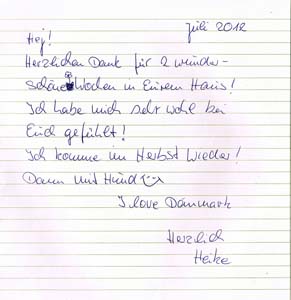 Juli 2012
Hej!
Herzlichen Dank für 2 wunder-
schöne Wochen in Eurem Haus!
Ich habe mich sehr wohl bei
Euch gefühlt!
Ich komme im Herbst wieder!
Dann mit Hund
I love Danmark
Herzlich
Heike